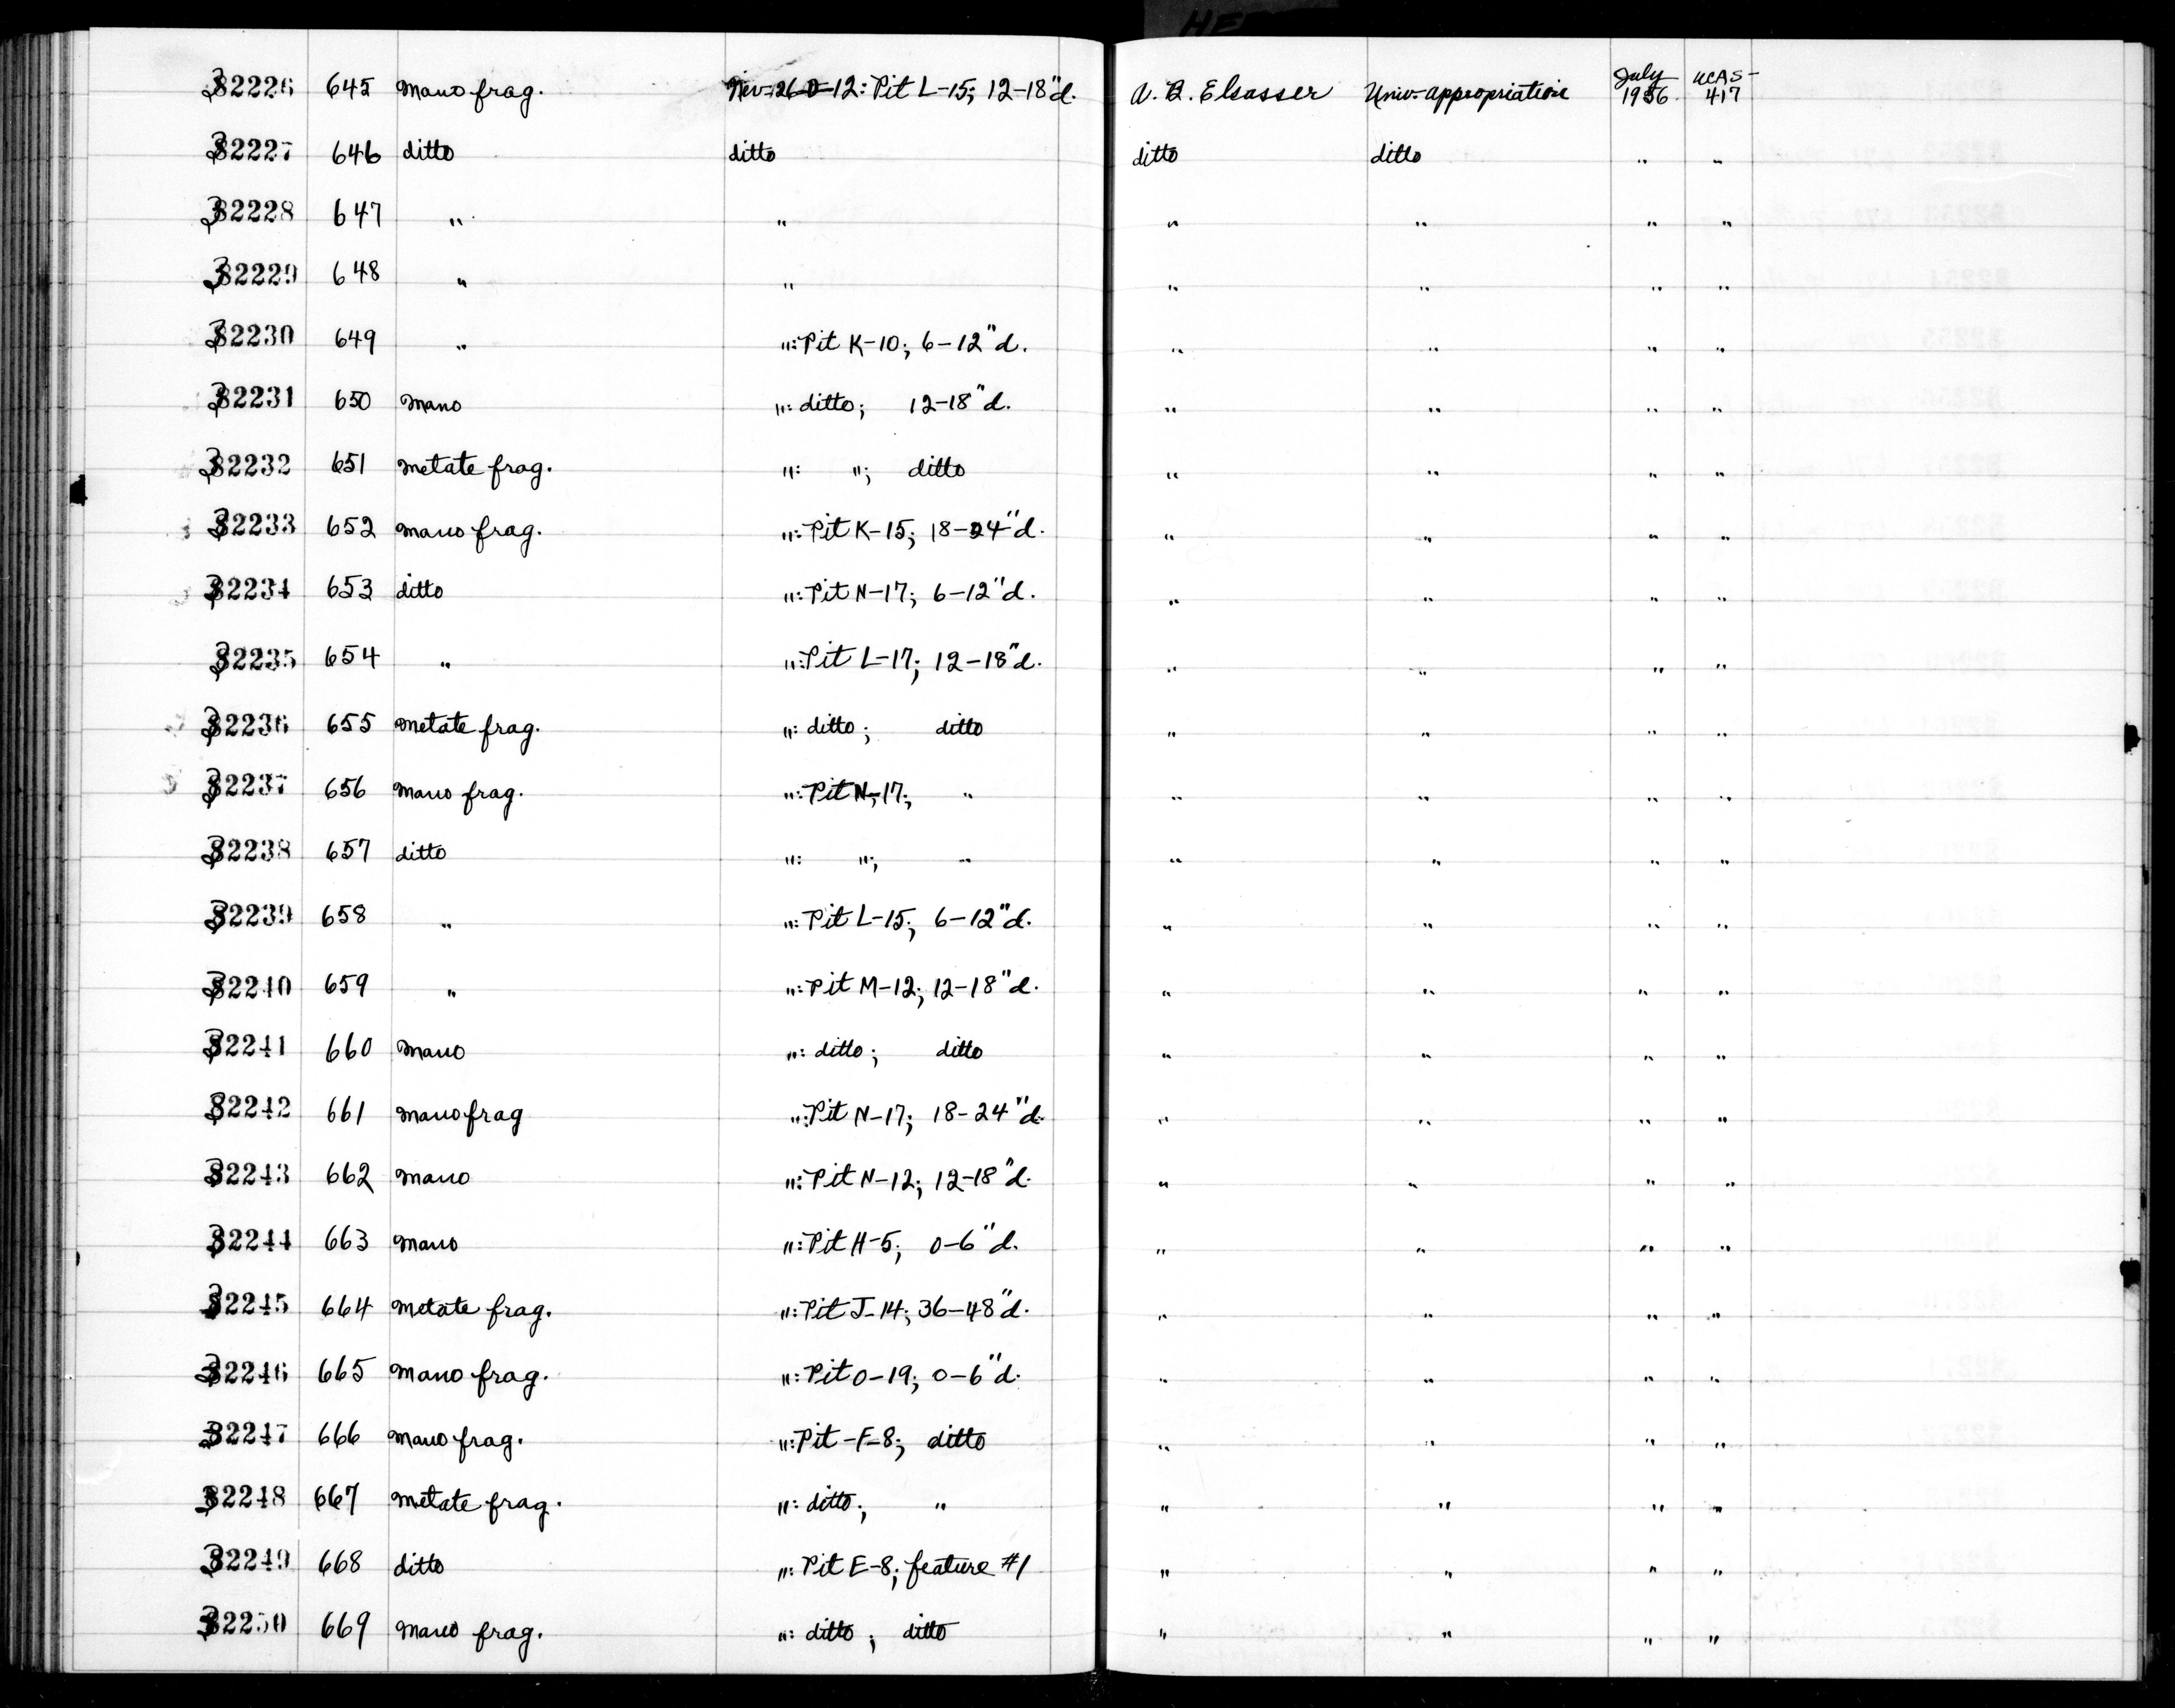 32226 645 Mano frag. Nev-26-D-12: Pit L-15; 12-18"d. A. B. Elsasser Univ. appropriation July 1956 UCAS-417
32227 646 ditto ditto ditto ditto " "
32228 647 " " " " " "
32229 648 " " " " " "
32230 649 " ": Pit K-10; 6-12"d. " " " "
32231 650 Mano ": ditto; 12-18"d. " " " "
32232 651 Metate frag. ": "; ditto " " " "
32233 652 Mano frag. ": Pit K-15; 18-24"d. " " " "
32234 653 ditto ": Pit N-17; 6-12"d. " " " "
32235 654 " ": Pit L-17; 12-18"d. " " " "
32236 655 Metate frag. ": ditto; ditto " " " "
32237 656 Mano frag. ": Pit N-17; " " " " "
32238 657 ditto ": "; " " " " "
32239 658 " ": Pit L-15; 6-12"d. " " " "
32240 659 " ": Pit M-12; 12-18"d. " " " "
32241 660 Mano ": ditto; ditto " " " "
32242 661 Mano frag ": Pit N-17; 18-24"d. " " " "
32243 662 Mano ": Pit N-12; 12-18"d. " " " "
32244 663 Mano ": Pit H-5; 0-6"d. " " " "
32245 664 Metate frag. ": Pit J-14; 36-48"d. " " " "
32246 665 Mano frag. ": Pit O-19; 0-6"d. " " " "
32247 666 Mano frag. ": Pit-F-8; ditto " " " "
32248 667 Metate frag. ": ditto; " " " " "
32249 668 ditto ": Pit E-8; feature #1 " " " "
32250 669 Mano frag. ": ditto; ditto " " " "